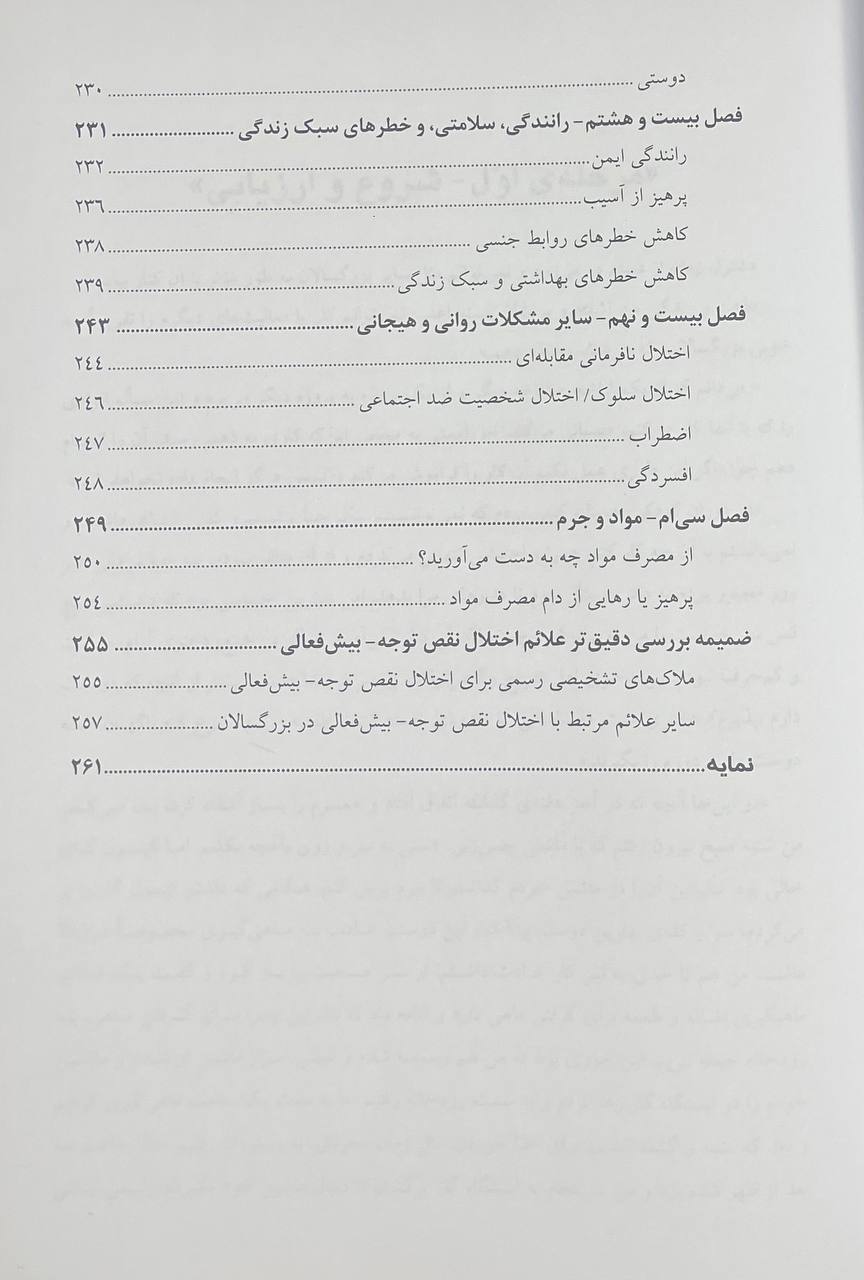 دوستی ........ ۲۳۰
فصل بیست و هشتم- رانندگی، سلامتی، و خطرهای سبک زندگی ........ ۲۳۱
رانندگی ایمن ........ ۲۳۲
پرهیز از آسیب ........ ۲۳٦
کاهش خطرهای روابط جنسی ........ ۲۳۸
کاهش خطرهای بهداشتی و سبک زندگی ........ ۲۳۹
فصل بیست و نهم- سایر مشکلات روانی و هیجانی ........ ۲۴۳
اختلال نافرمانی مقابله‌ای ........ ۲٤٤
اختلال سلوک/ اختلال شخصیت ضد اجتماعی ........ ۲٤٦
اضطراب ........ ۲٤۷
افسردگی ........ ۲٤۸
فصل سی‌ام- مواد و جرم ........ ۲۴۹
از مصرف مواد چه به دست می‌آورید؟ ........ ۲۵۰
پرهیز یا رهایی از دام مصرف مواد ........ ۲۵٤
ضمیمه بررسی دقیق‌تر علائم اختلال نقص توجه- بیش‌فعالی ........ ۲۵۵
ملاک‌های تشخیصی رسمی برای اختلال نقص توجه- بیش‌فعالی ........ ۲۵۵
سایر علائم مرتبط با اختلال نقص توجه- بیش‌فعالی در بزرگسالان ........ ۲۵۷
نمایه ........ ۲۶۱